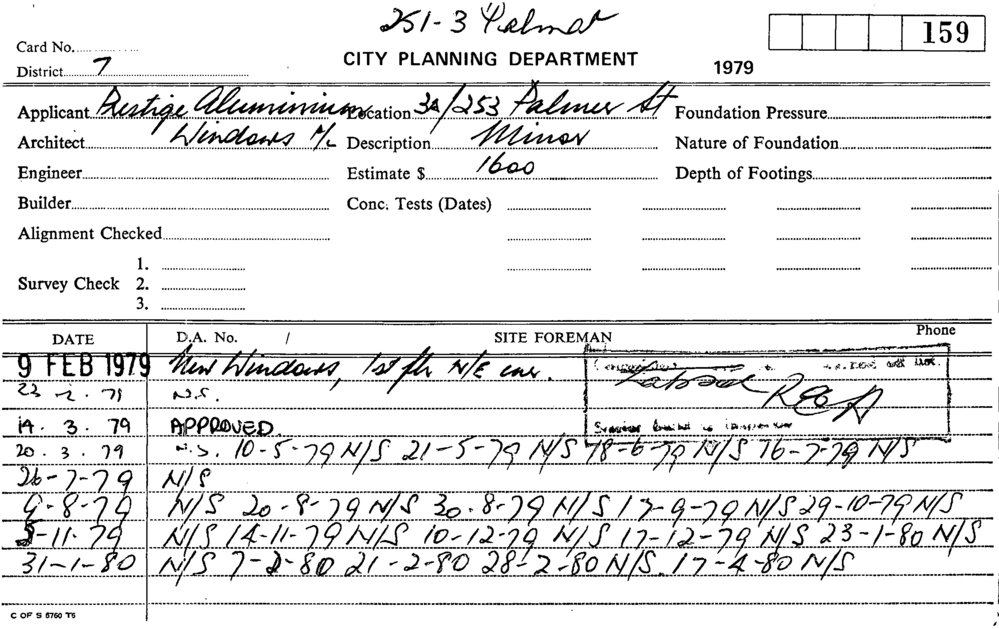 251-3 Palmer
Card No. 159
CITY PLANNING DEPARTMENT
District 7 1979
Applicant Prestige Aluminium Location 3A/253 Palmer St Foundation Pressure
Architect Windows P/L Description Minor Nature of Foundation
Engineer Estimate $ 1600 Depth of Footings
Builder Conc. Tests (Dates)
Alignment Checked
1.
Survey Check 2.
3.
DATE D.A. No. / SITE FOREMAN Phone
9 FEB 1979 New Windows, 1st flr N/E cnr.
23 - 2 . 79 N.S.
19 . 3 . 79 APPROVED.
20 . 3 . 79 N.S. 10-5-79 N/S 21-5-79 N/S 18-6-79 N/S 16-7-79 N/S
26-7-79 N/S
9-8-79 N/S 20-8-79 N/S 30.8-79 N/S 17-9-79 N/S 29-10-79 N/S
5-11-79 N/S 14-11-79 N/S 10-12-79 N/S 17-12-79 N/S 23-1-80 N/S
31-1-80 N/S 7-2-80 21-2-80 28-2-80 N/S. 17-4-80 N/S
C OF S 5760 T5